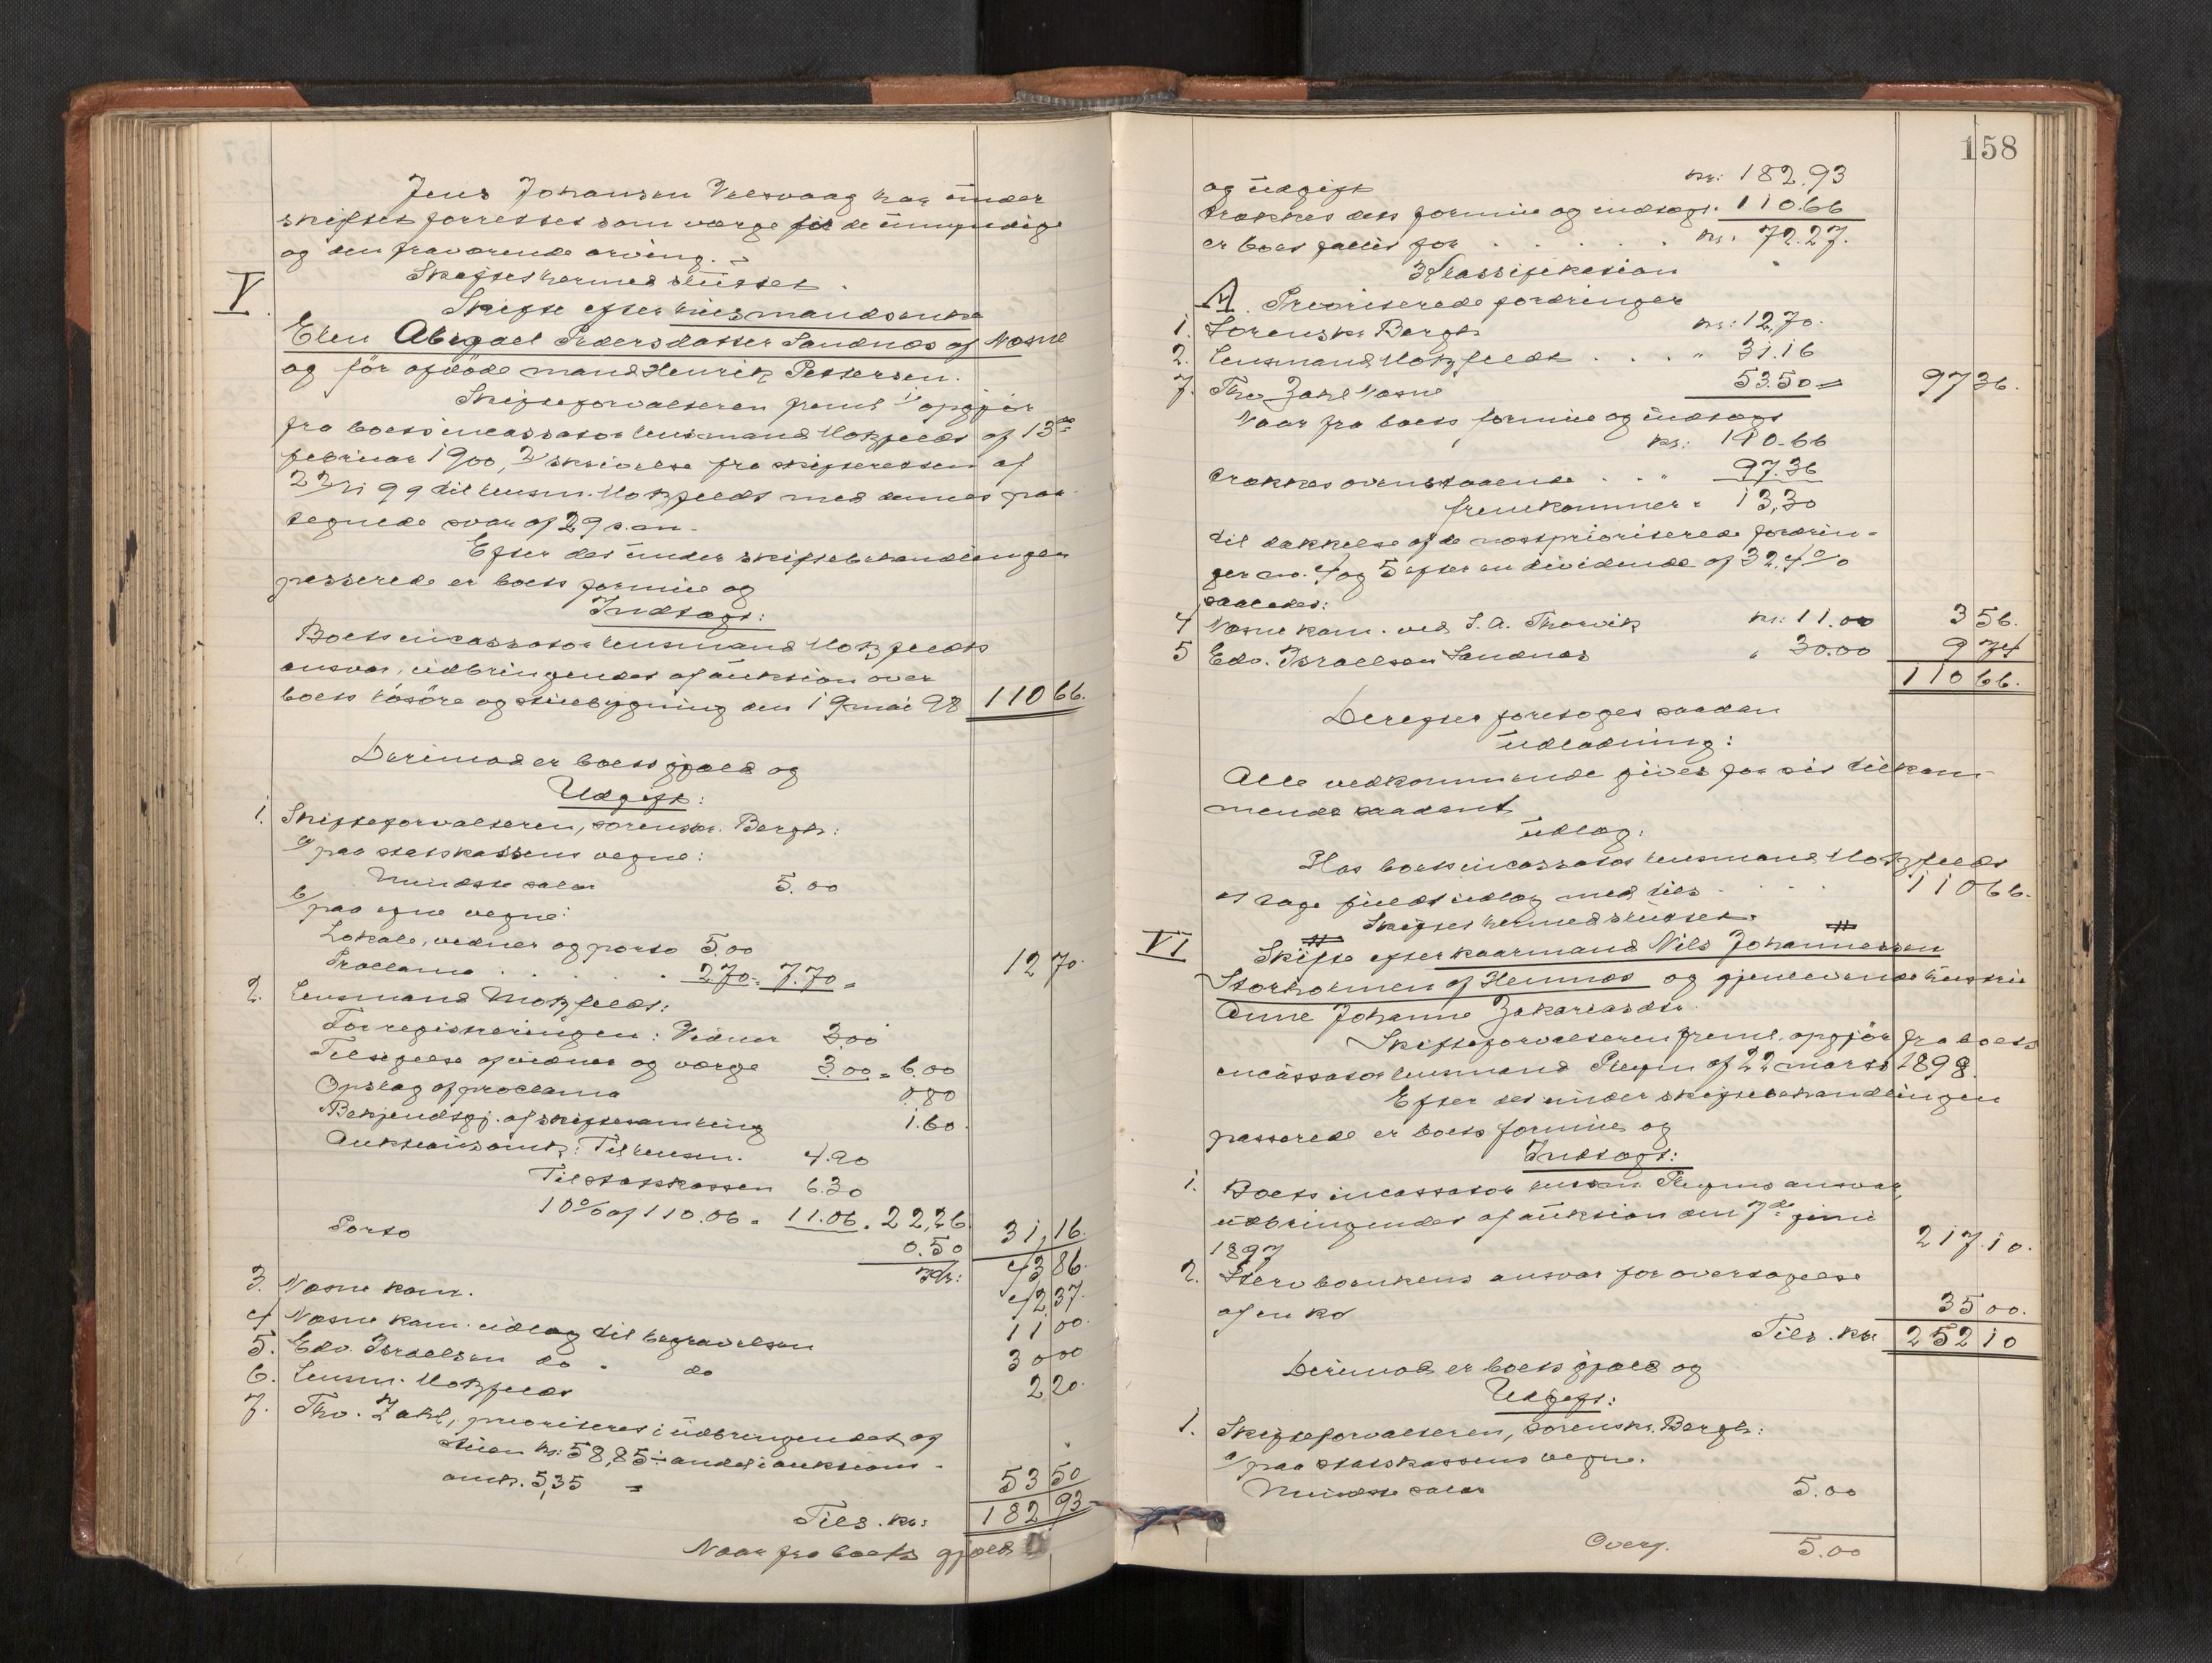 Jens Johansen Velsvaag har under
skiftet forrettet som værge for de umyndige
og den fraværende arving. -
Skiftet hermed sluttet.
V. Skifte efter husmandsenke
Elen Abigael Pedersdatter Sandnæs af Næsne
og før afdøde mand Henrik Pettersen.
Skifteforvalteren freml 1/ opgjør
fra boets incassator lensmand Motzfeldt af 13de
februar 1900, 2/ skrivelse fra skifteretten af
22/ 99 til lensm. Motzfeldt med dennes paa
tegnede svar af 29 s.m.
Efter det under skiftebehandlingen
passerede er boets formue og
Indtægt:
Boets incassator lensmand Motzfeldts
ansvar, udbringendet af auktion over
boets løsøre og stuebygning den 19 mai 98 110 66.
Derimod er boets gjæld og
Udgift:
1. Skifteforvalteren, sorenskr. Bergh:
a/ paa statskassens vegne:
Mindste salær 5.00
b/ paa egne vegne:
Lokale, vidner og porto 5.00
Proclama . . . . . 2.70 = 7.70 = 12 70.
2. Lensmand Motzfeldt:
For registreringen: Vidner 3.00
Tilsigelse af vidner og værge 3.00 = 6.00
Opslag af proclama 0.80
Bekjendtgj. af skiftesamling 1.60.
Auktionsomk.: Til lensm. 4.90
Til statskassen 6.30
10% af 110.06 = 11.06 = 22,26
Porto 0.50 31,16.
43 86.
3. Næsne kom. 42 37.
4 Næsne kom. udlæg til begravelsen 11 00.
5. Edv. Israelsen do - do 30 00
6. Lensm. Motzfeldt 2 20.
7. Thv. Zahl, prioriteret i udbringendet af
stuen kr: 58,85 ÷ andel i auktions-
omk. 5,35 = 53 50
Tils. kr: 182 93
Naar fra boets gjæld
158
og udgift kr: 182.93
trækkes dets formue og indtægt. 110.66
er boet fallit for . . . . . kr. 72.27.
Klassifikation
A. Prioriterede fordringer
1. Sorenskr Bergh kr: 12,70.
2. Lensmand Motzfeldt . . . . " 31.16
7. Thv Zahl Næsne 53.50 = 97 36.
Naar fra boets formue og indtægt
kr: 110.66
trækkes ovenstaaende . . " 97.36
fremkommer " 13,30
til dækkelse af de næstprioriterede fordrin-
ger no. 4 og 5 efter en dividende af 32.4%
saaledes:
4 Næsne kom. ved S. A. Thorvik kr: 11.00 3 56.
5 Edv. Israelsen Sandnæs " 30.00 9 74
110 66.
Derefter foretoges saadan
udlodning:
Alle vedkommende gives for sit tilkom-
mende saadant
udlæg:
Hos boets incassator lensmand Motzfeldt
at tage fuldt udlæg med tils . . . . 110 66.
Skiftet hermed sluttet.
VI Skifte efter kaarmand Nils Johannessen
Storholmen af Hemnæs og gjenlevende hustru
Anne Johanne Zakariasdtr.
Skifteforvalteren freml. opgjør fra boets
incassator lensmand Pleym af 22 marts 1898.
Efter det under skiftebehandlingen
passerede er boets formue og
Indtægt:
1. Boets incassator lensm. Pleyms ansvar,
udbringendet af auktion den 7de juni
1897 217.10.
2. Stervboenkens ansvar for overtagelse
af en ko 35 00.
Tils. kr: 252 10
Derimod er boets gjæld og
Udgift:
1. Skifteforvalteren, sorenskr. Bergh:
a/ paa statskassens vegne.
Mindste salær 5.00
Overf. 5.00